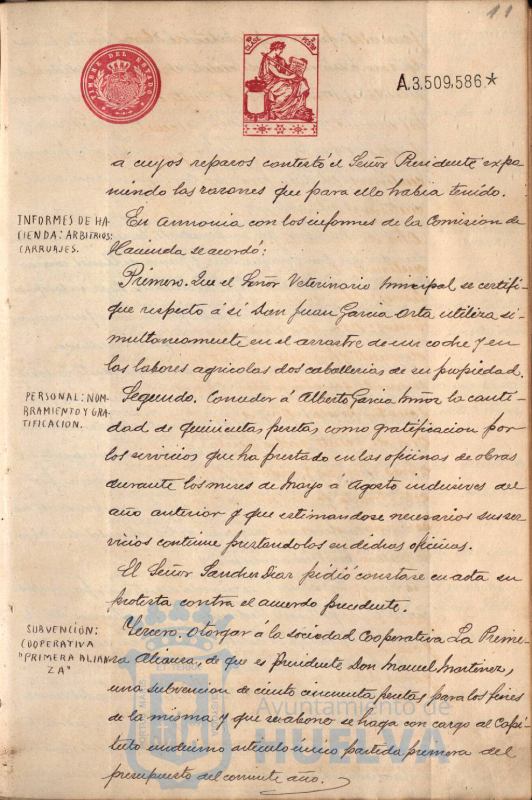 11
TIMBRE DEL ESTADO
A.3.509.586.*
á cuyos reparos contestó el Señor Presidente expo-
niendo las razones que para ello habia tenido.
INFORMES DE HA-
CIENDA: ARBITRIOS:
CARRUAJES.
En armonia con los informes de la Comision de
Hacienda se acordó:
Primero. Que el Señor Veterinario Municipal se certifi-
que respecto á si Don Juan Garcia Orta utiliza si-
multaneamente en el arrastre de un coche y en
las labores agricolas dos caballerias de su propiedad.
PERSONAL: NOM-
BRAMIENTO Y GRA-
TIFICACION.
Segundo. Conceder á Alberto Garcia Muñoz la canti-
dad de quinientas pesetas, como gratificacion por
los servicios que ha prestado en las oficinas de obras
durante los meses de Mayo á Agosto inclusives del
año anterior y que estimandose necesarios sus ser-
vicios continue prestandolos en dichas oficinas.
El Señor Sanchez Diaz pidió constase en acta su
protesta contra el acuerdo precedente.
SUBVENCIÓN:
COOPERATIVA
"PRIMERA ALIAN-
ZA"
Tercero. Otorgar á la sociedad Cooperativa La Prime-
ra Alianza, de que es Presidente Don Manuel Martinez,
una subvencion de ciento cincuenta pesetas para los fines
de la misma y que se abono se haga con cargo al Capi-
tulo undecimo articulo único partida primera del
presupuesto del corriente año.
Ayuntamiento de
HUELVA